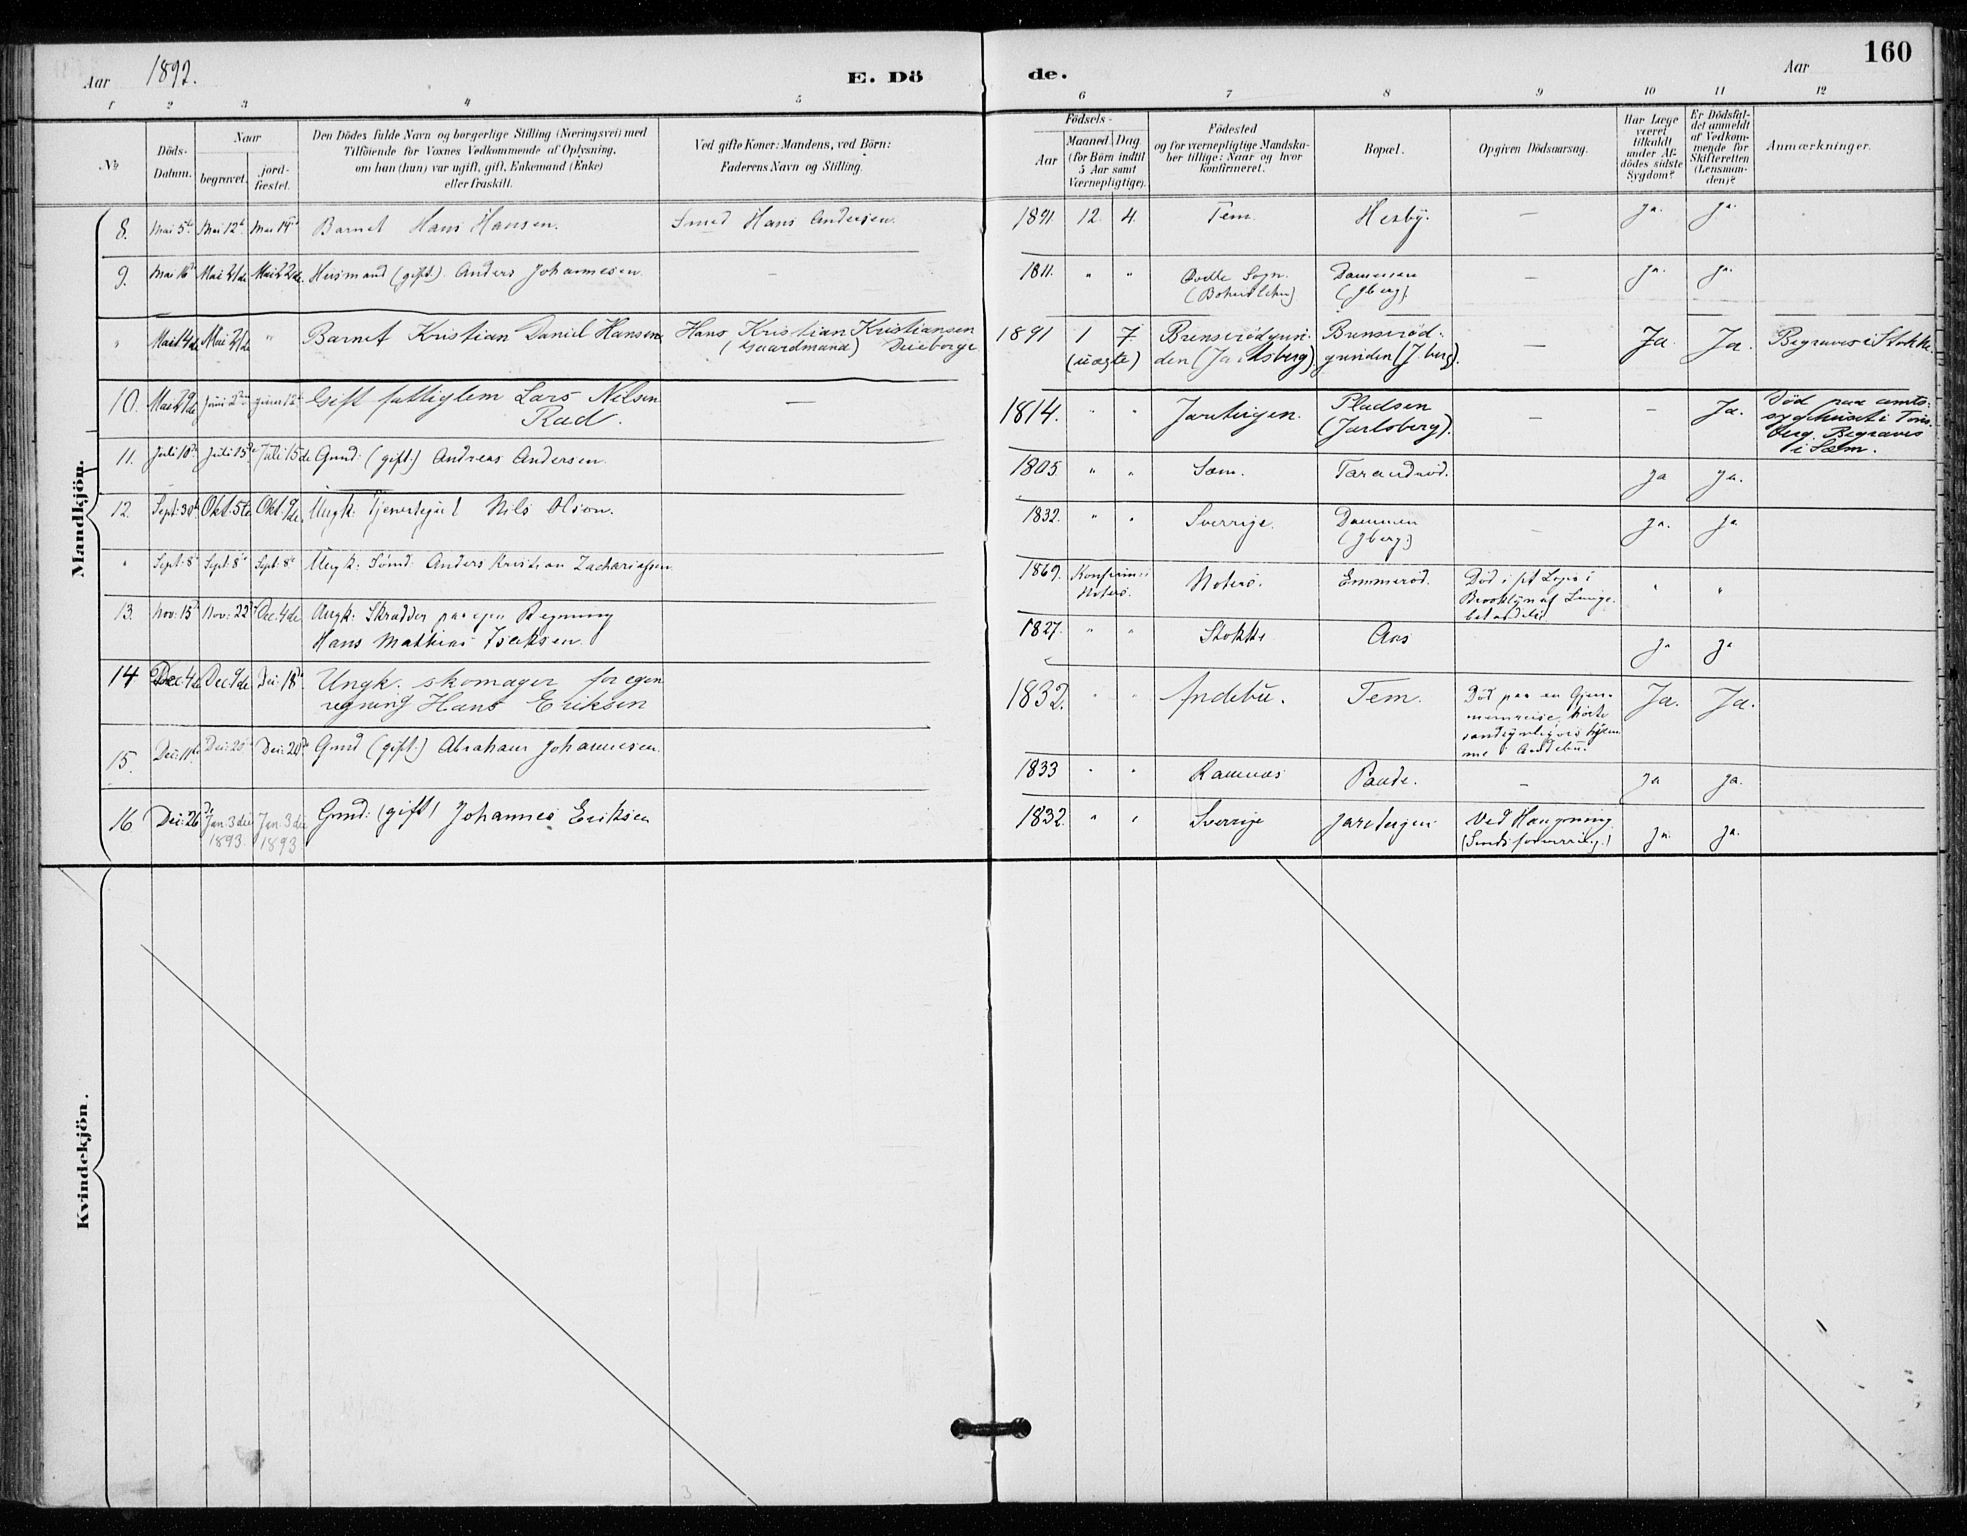 160
Aar 1892. E. Dö de. Aar
1 2 3 4 5 6 7 8 9 10 11 12
№
Döds-
Datum.
Naar
begravet.
jord-
fæstet.
Den Dödes fulde Navn og borgerlige Stilling (Næringsvei) med
Tilföiende for Voxnes Vedkommende af Oplysning,
om han (hun) var ugift, gift, Enkemand (Enke)
eller fraskilt.
Ved gifte Koner: Mandens, ved Börn:
Faderens Navn og Stilling.
Födsels-
Aar
Maaned Dag
(for Börn indtil
5 Aar samt
Værnepligtige).
Födested
og for værnepligtige Mandska-
ber tillige: Naar og hvor
konfirmeret.
Bopæl.
Opgiven Dödsaarsag.
Har Læge
været
tilkaldt
under Af-
dödes sidste
Sygdom?
Er Dödsfal-
det anmeldt
af Vedkom-
mende for
Skifteretten
(Lensman-
den)?
Anmærkninger.
Mandkjön.
8. Mai 5te Mai 12te Barnet Hans Hansen. Smed Hans Andersen. 1891. 12. 4. Tem. Hesby. — Ja. Ja.
9. Mai 16de Mai 21de Husmand (gift) Anders Johannesen. — 1811. " " Sogn. Dammen — Ja. Ja.
(Jberg).
" Mai 14de Mai 21de " Barnet Kristian Daniel Hansen Hans Kristian Kristiansen 1891 1 7. — Ja. Ja. Begraves i Stokke.
(Gaardmand) (uægte) den (Jarlsberg) (J.berg).
10. Mai 29de Juni 2den Juni 12te Gift fattiglem Lars Nilsen — 1814. " " Jareteigen. Pladsen — — Ja. Død paa amts-
Rad. (Jarlsberg). sygehuset i Töns-
berg. Begraves
i Sæm.
11. Juli 10de Juli 15de Juli 15de Gmd: (gift) Andreas Andersen. 1805 " " Sæm. Tarandrød. Ja Ja.
12. Sept: 30te Okt. 5te Okt. 9de Ungk: Tjenestegut Nils Olson. 1832. " " Sverrige. Dammen — Ja. Ja
(Jberg.)
" Sept: 8de Sept: 8de Sept: 8de Ungk: Sømd: Anders Kristian Zachariassen 1869. Konfirm: i Nøterø. Emmerød. " "
Nøterø. Brooklyn af Lunge-
betændelse
13. Nov: 15de Nov: 22de Dec. 4de Ungk: Skrædder paa egen Regning 1827. " " Stokke Aas Ja Ja
Hans Mathias Isaksen.
14 Dec 4de Dec 9de Dec: 18de Ungk. skomager for egen 1832. " " Andebu. Tem. Død paa en Gjen- Ja. Ja.
regning Hans Eriksen
15. Dec: 11te Dec: 20de Dec: 20de Gmd (gift.) Abraham Johannesen. 1833 " " Ramnæs — Ja Ja.
16 Dec: 26de Jan. 3die Jan. 3die Gmd: (gift) Johannes Eriksen 1832. " " Sverrige Jareteigen Ved Hængning Ja. Ja.
1893. 1893
Kvindekjön.